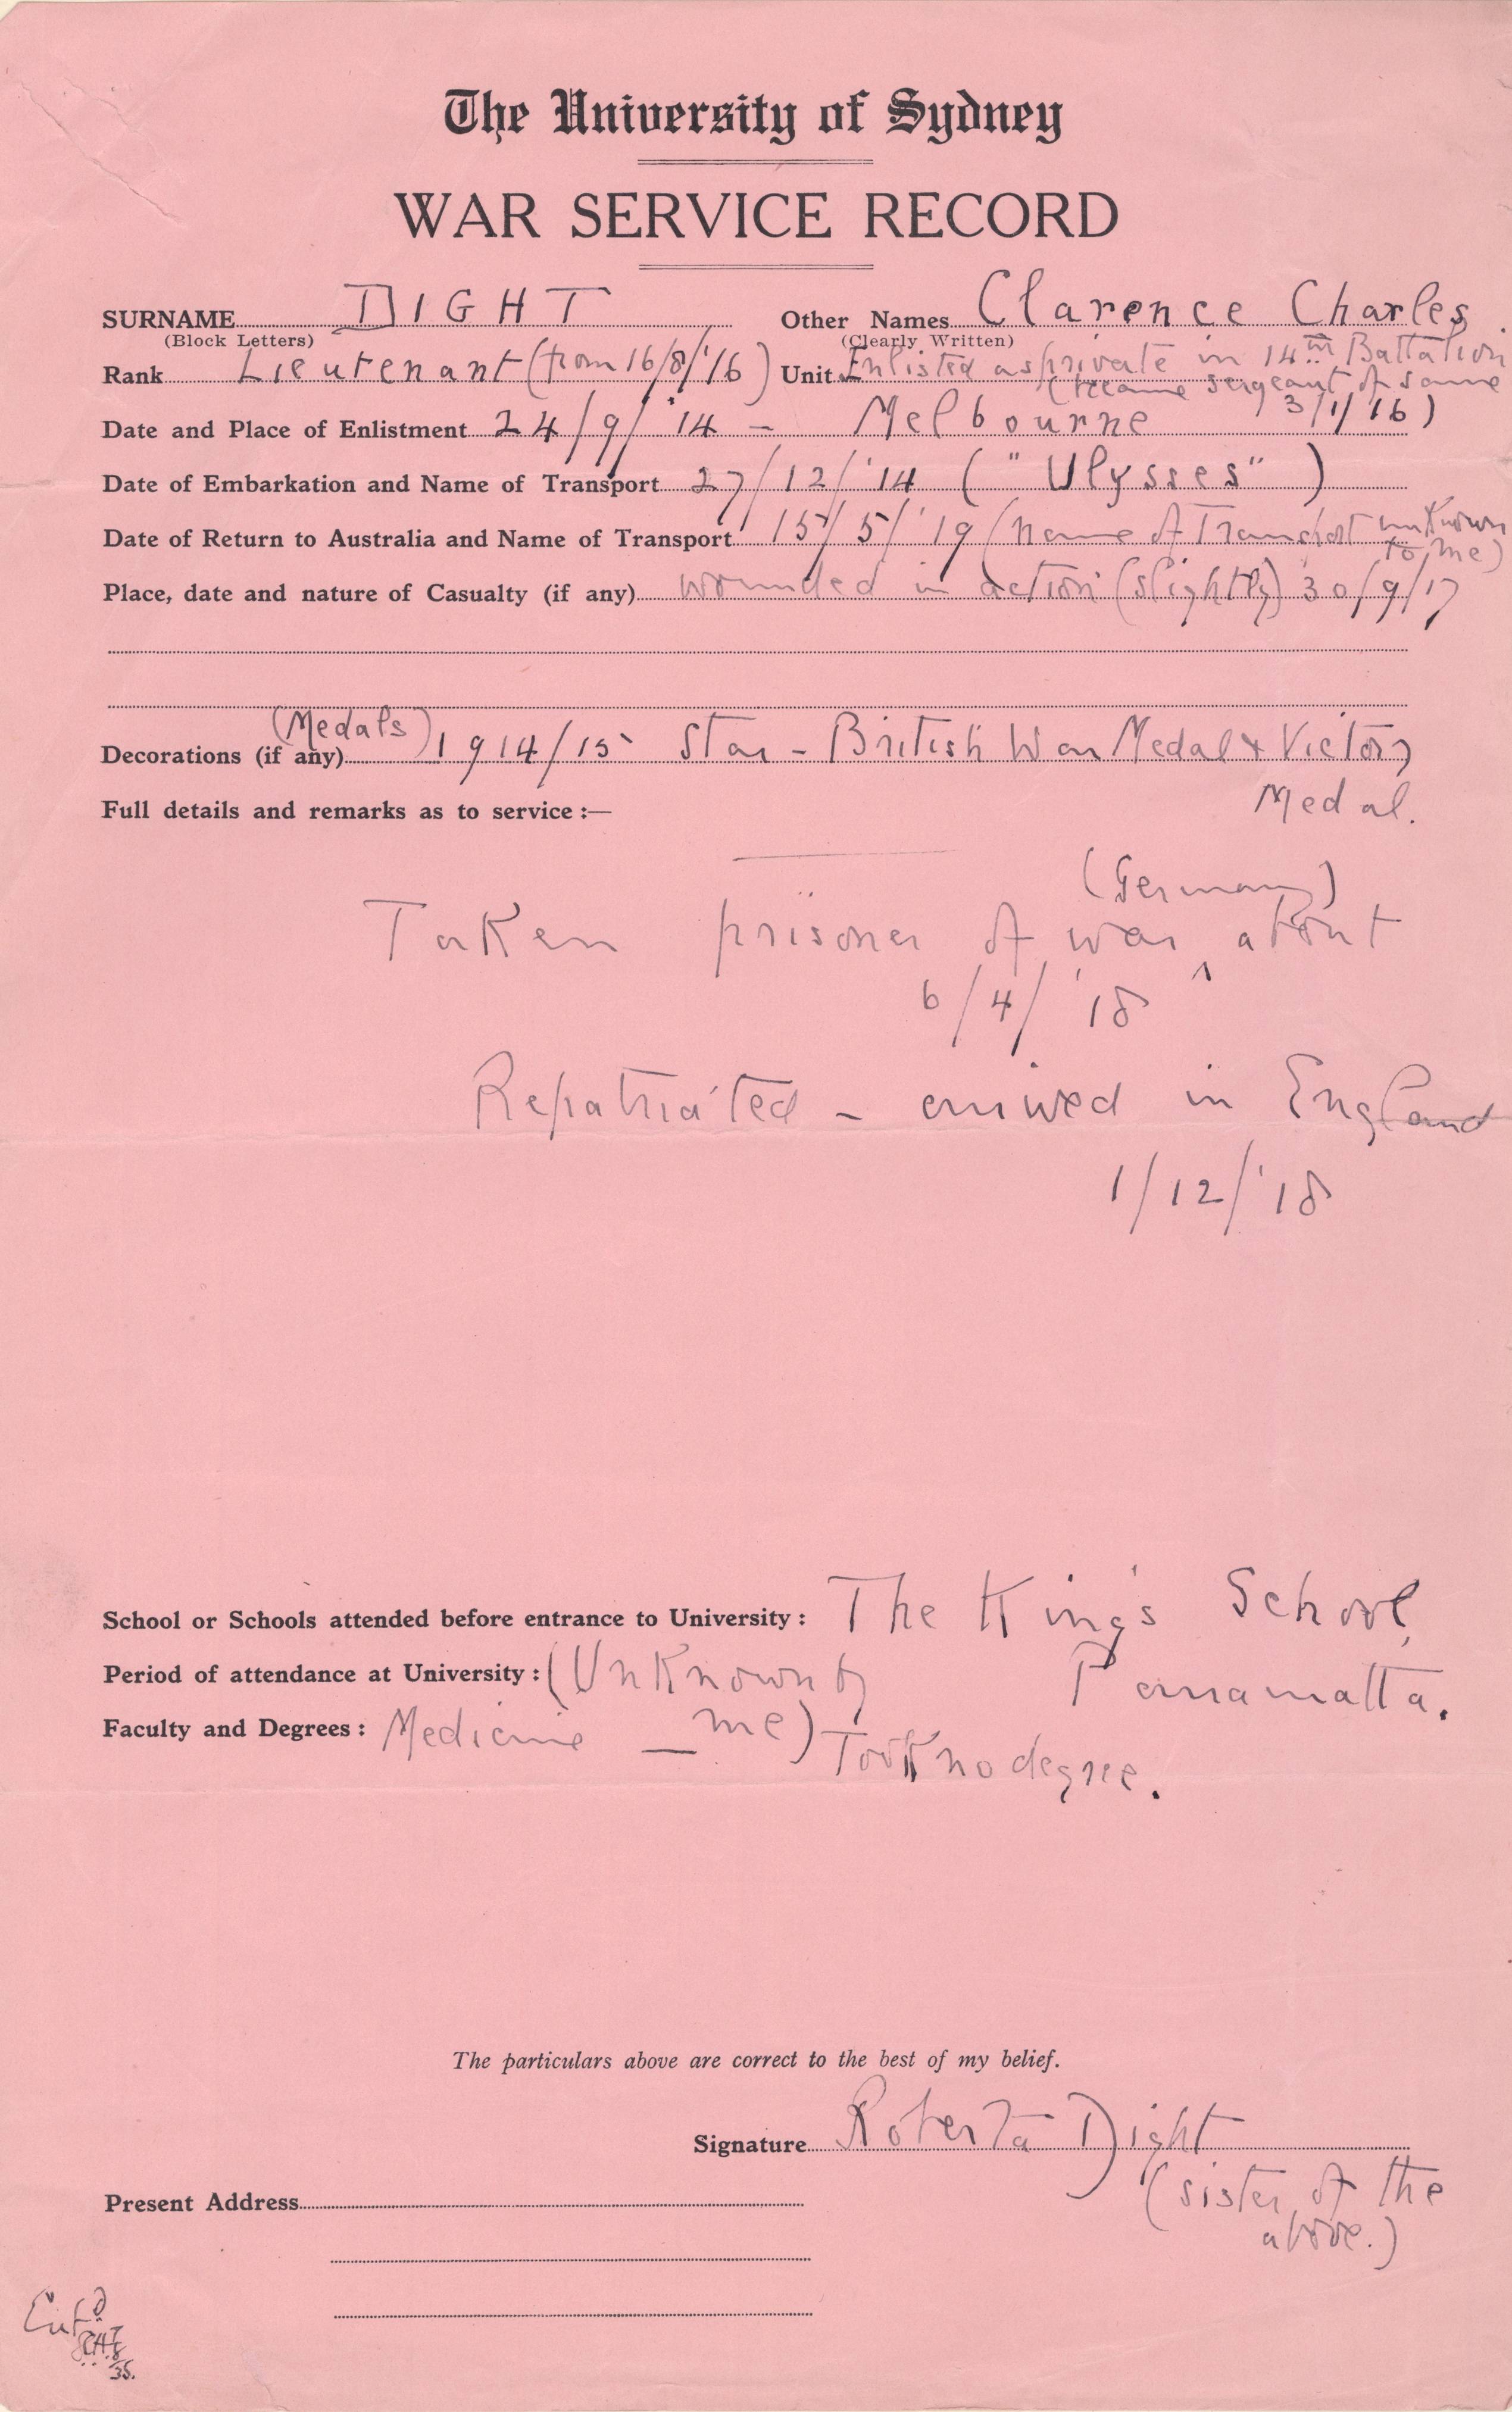 The University of Sydney
WAR SERVICE RECORD
SURNAME DIGHT Other Names Clarence Charles
(Block Letters) (Clearly Written)
Rank Lieutenant (from 16/8/'16) Unit Enlisted as private in 14th Battalion
(became sergeant of same
3/1/16)
Date and Place of Enlistment 24/9/'14 - Melbourne
Date of Embarkation and Name of Transport 27/12/'14 ("Ulysses")
Date of Return to Australia and Name of Transport 15/5/'19 (name of Transport unknown
to me)
Place, date and nature of Casualty (if any) wounded in action (slightly) 30/9/17
(Medals)
Decorations (if any) 1914/15 Star - British War Medal & Victory
Medal.
Full details and remarks as to service :—
(Germany)
Taken prisoner of war ^ about
6/4/'18
Repatriated - arrived in England
1/12/'18
School or Schools attended before entrance to University : The King's School,
Parramatta.
Period of attendance at University : (Unknown by
me)
Faculty and Degrees : Medicine — Took no degree.
The particulars above are correct to the best of my belief.
Signature Roberta Dight
(sister of the
above.)
Present Address
Entd
35.